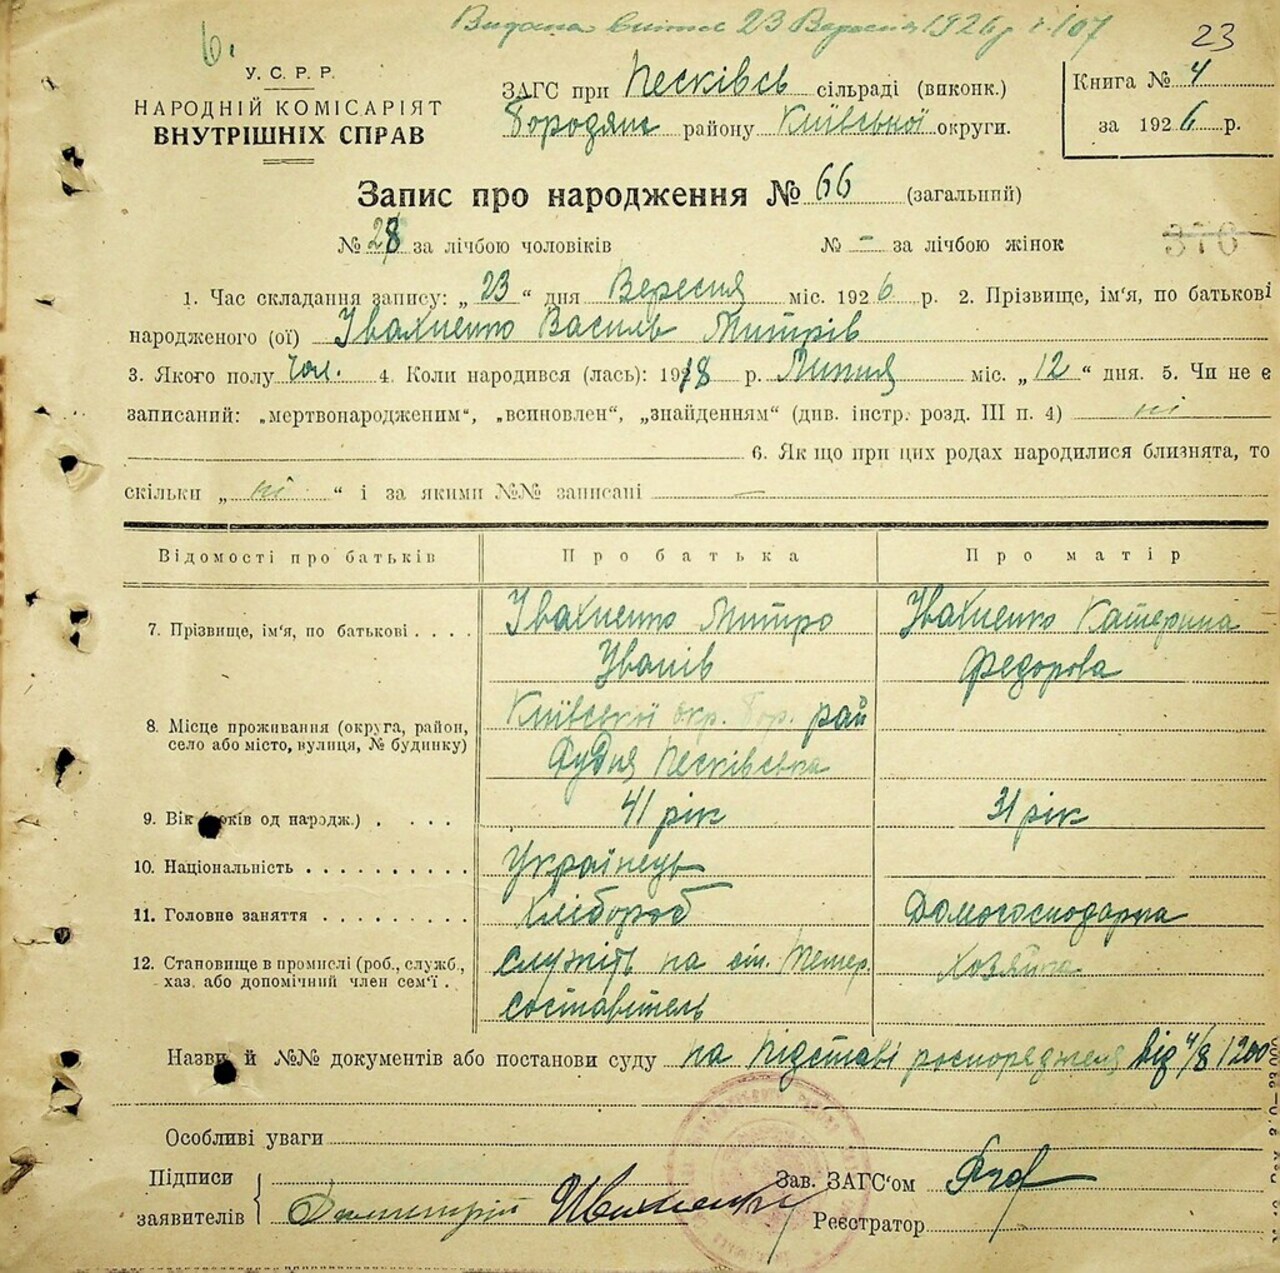 Видана витяг 23 Вересня 1926 р. ч. 107
6.
23
У. С. Р. Р.
НАРОДНІЙ КОМІСАРІЯТ
ВНУТРІШНІХ СПРАВ
ЗАГС при Песківсь сільраді (виконк.)
Бородян району Київської округи.
Книга № 4
за 1926 р.
Запис про народження № 66 (загальний)
№ 28 за лічбою чоловіків № – за лічбою жінок
370
1. Час складання запису: „ 23 “ дня Вересня міс. 1926 р. 2. Прізвище, ім'я, по батькові
народженого (ої) Івахненко Василь Митрів
3. Якого полу чол. 4. Коли народився (лась): 1918 р. Липня міс. „ 12 “ дня. 5. Чи не є
записаний: „мертвонародженим“, „всиновлен“, „знайденням“ (див. інстр. розд. III п. 4) ні
6. Як що при цих родах народилися близнята, то
скільки „ ні “ і за якими №№ записані –
Відомості про батьків Про батька Про матір
7. Прізвище, ім'я, по батькові . . . . Івахненко Митро Івахненко Катерина
Іванів Федорова
8. Місце проживання (округа, район,
село або місто, вулиця, № будинку)
Київської окр. Бор. рай
Рудня Песківська
9. Вік (років од народж.) . . . . 41 рік 31 рік
10. Національність . . . . . . . . . . Українець
11. Головне заняття . . . . . . . . . Хлібороб Домогосподарка
12. Становище в промислі (роб., служб.,
хаз. або допомічний член сем'ї .
служить на ст. Тетер. Хозяйка
составітель
Назви й №№ документів або постанови суду на підставі роспорядженя від 4/8 1200
Особливі уваги
Підписи
заявителів
Димитрій Ивахненко
Зав. ЗАГС'ом
Реєстратор